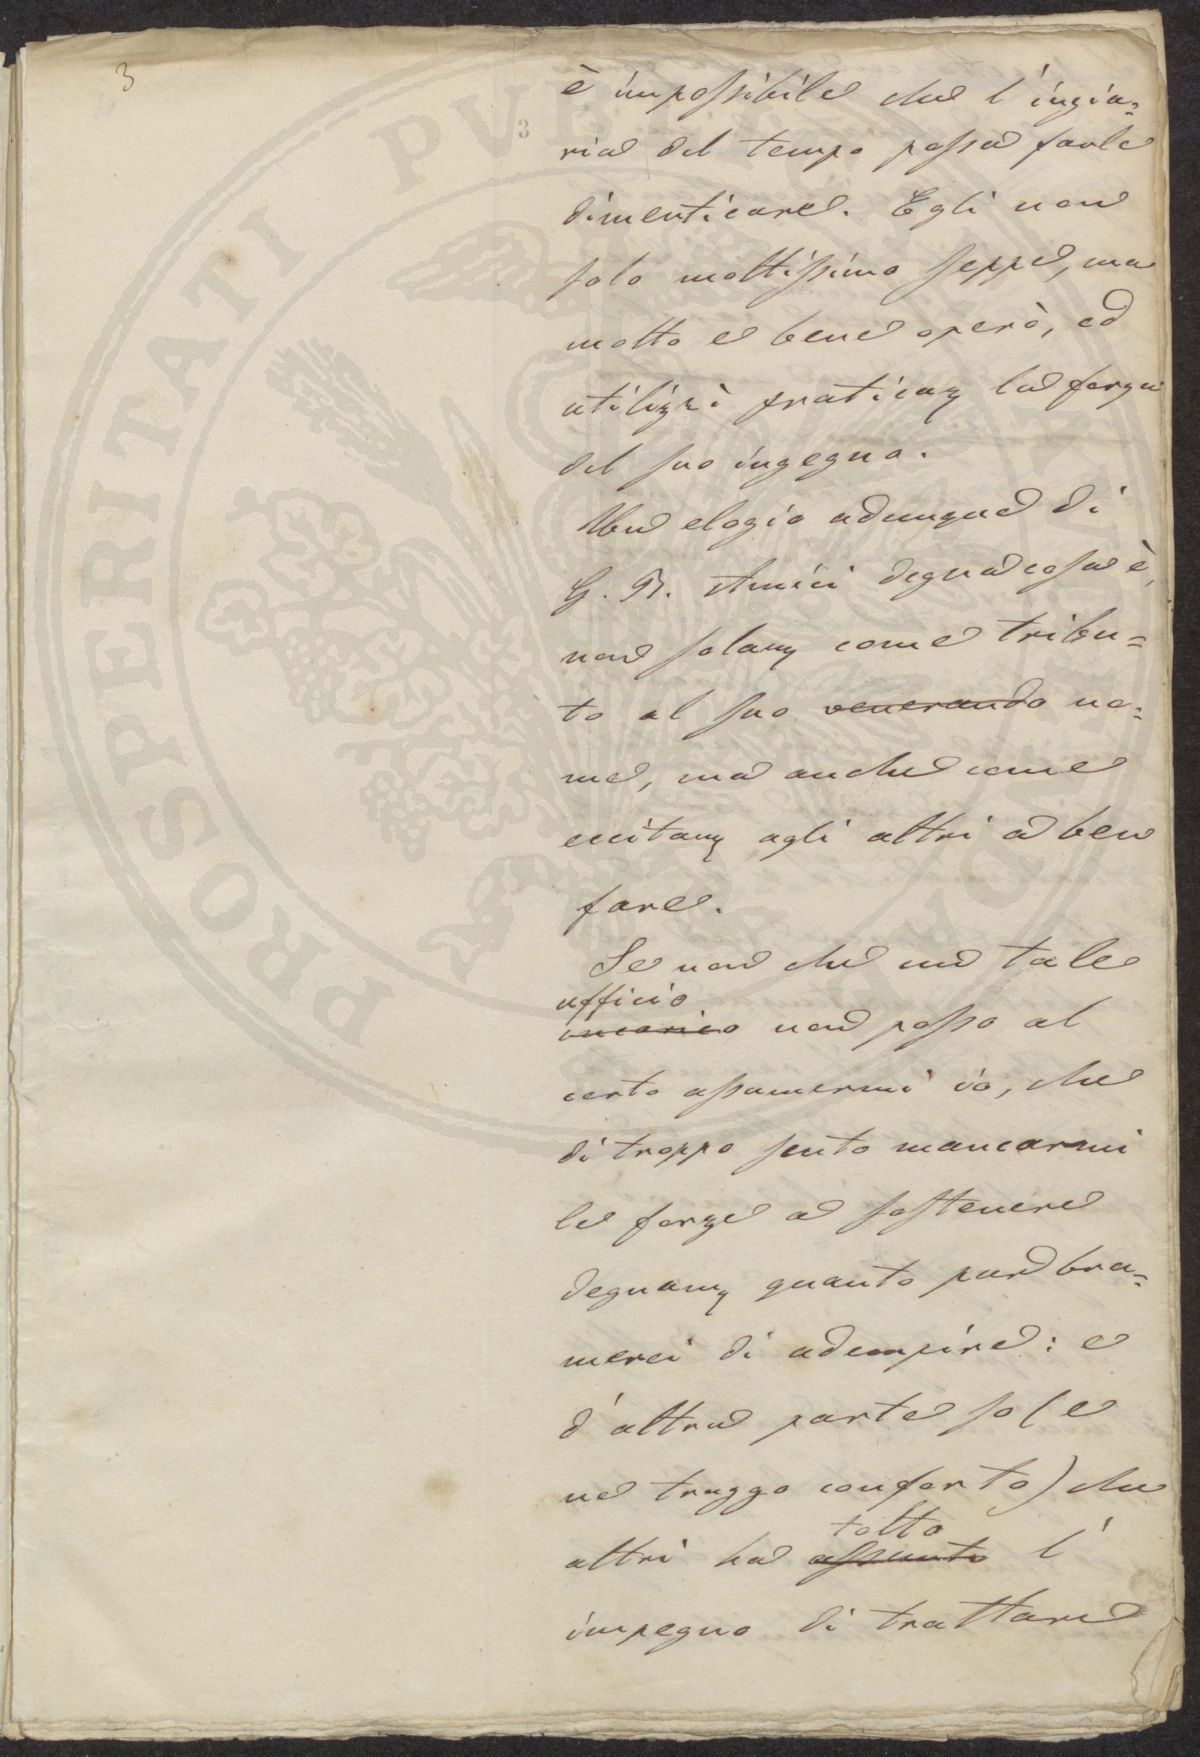 3
3
è impossibile che l'ingiu=
ria del tempo possa farle
dimenticare. Egli non
solo moltissimo seppe, ma
molto e bene operò, ed
utilizzò praticam. la forza
del suo ingegno.
Un elogio adunque di
G. B. Amici degna cosa è,
non solam. come tribu=
to al suo venerando no=
me, ma anche come
eccitam. agli altri a ben
fare.
Se non che un tale
ufficio
incarico non posso al
certo assumermi io, che
di troppo sento mancarmi
le forze a sostenere
degnam. quanto pur bra=
merei di adempire: e
d'altra parte so (e
ne traggo conforto) che
tolto
altri ha assunto l'
impegno di trattare
PROSPERITATI PVBLICAE